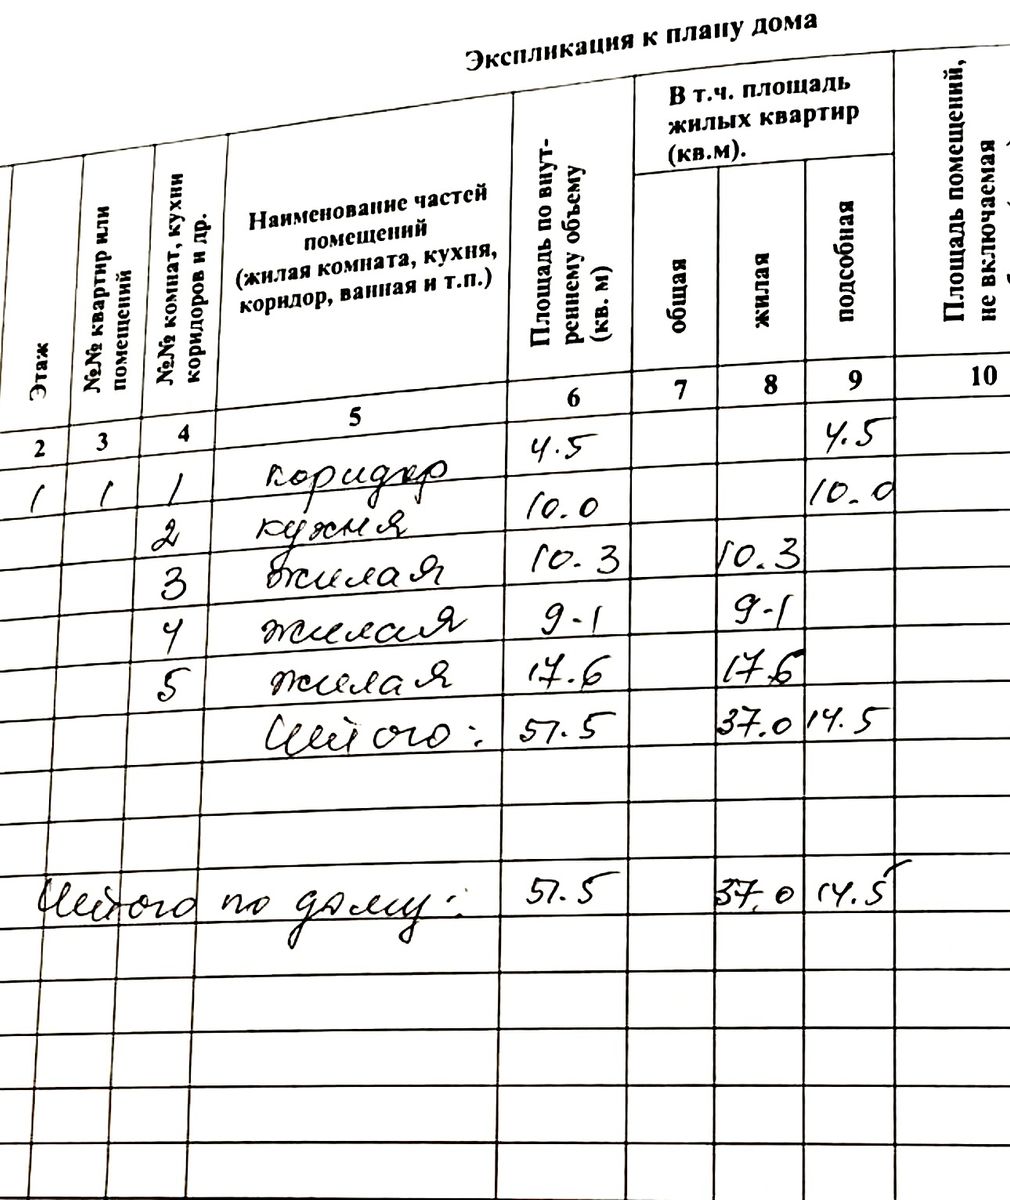 Экспликация к плану дома
Этаж
№№ квартир или
помещений
№№ комнат, кухни
коридоров и др.
Наименование частей
помещений
(жилая комната, кухня,
коридор, ванная и т.п.)
Площадь по внут-
реннему объему
(кв. м)
В т.ч. площадь
жилых квартир
(кв.м).
общая
жилая
подсобная
Площадь помещений,
не включаемая
2 3 4 5 6 7 8 9 10
1 1 1 коридор 4.5 4.5
2 кухня 10.0 10.0
3 жилая 10.3 10.3
4 жилая 9-1 9-1
5 жилая 17.6 17.6
Итого: 51.5 37.0 14.5
Итого по дому: 51.5 37.0 14.5